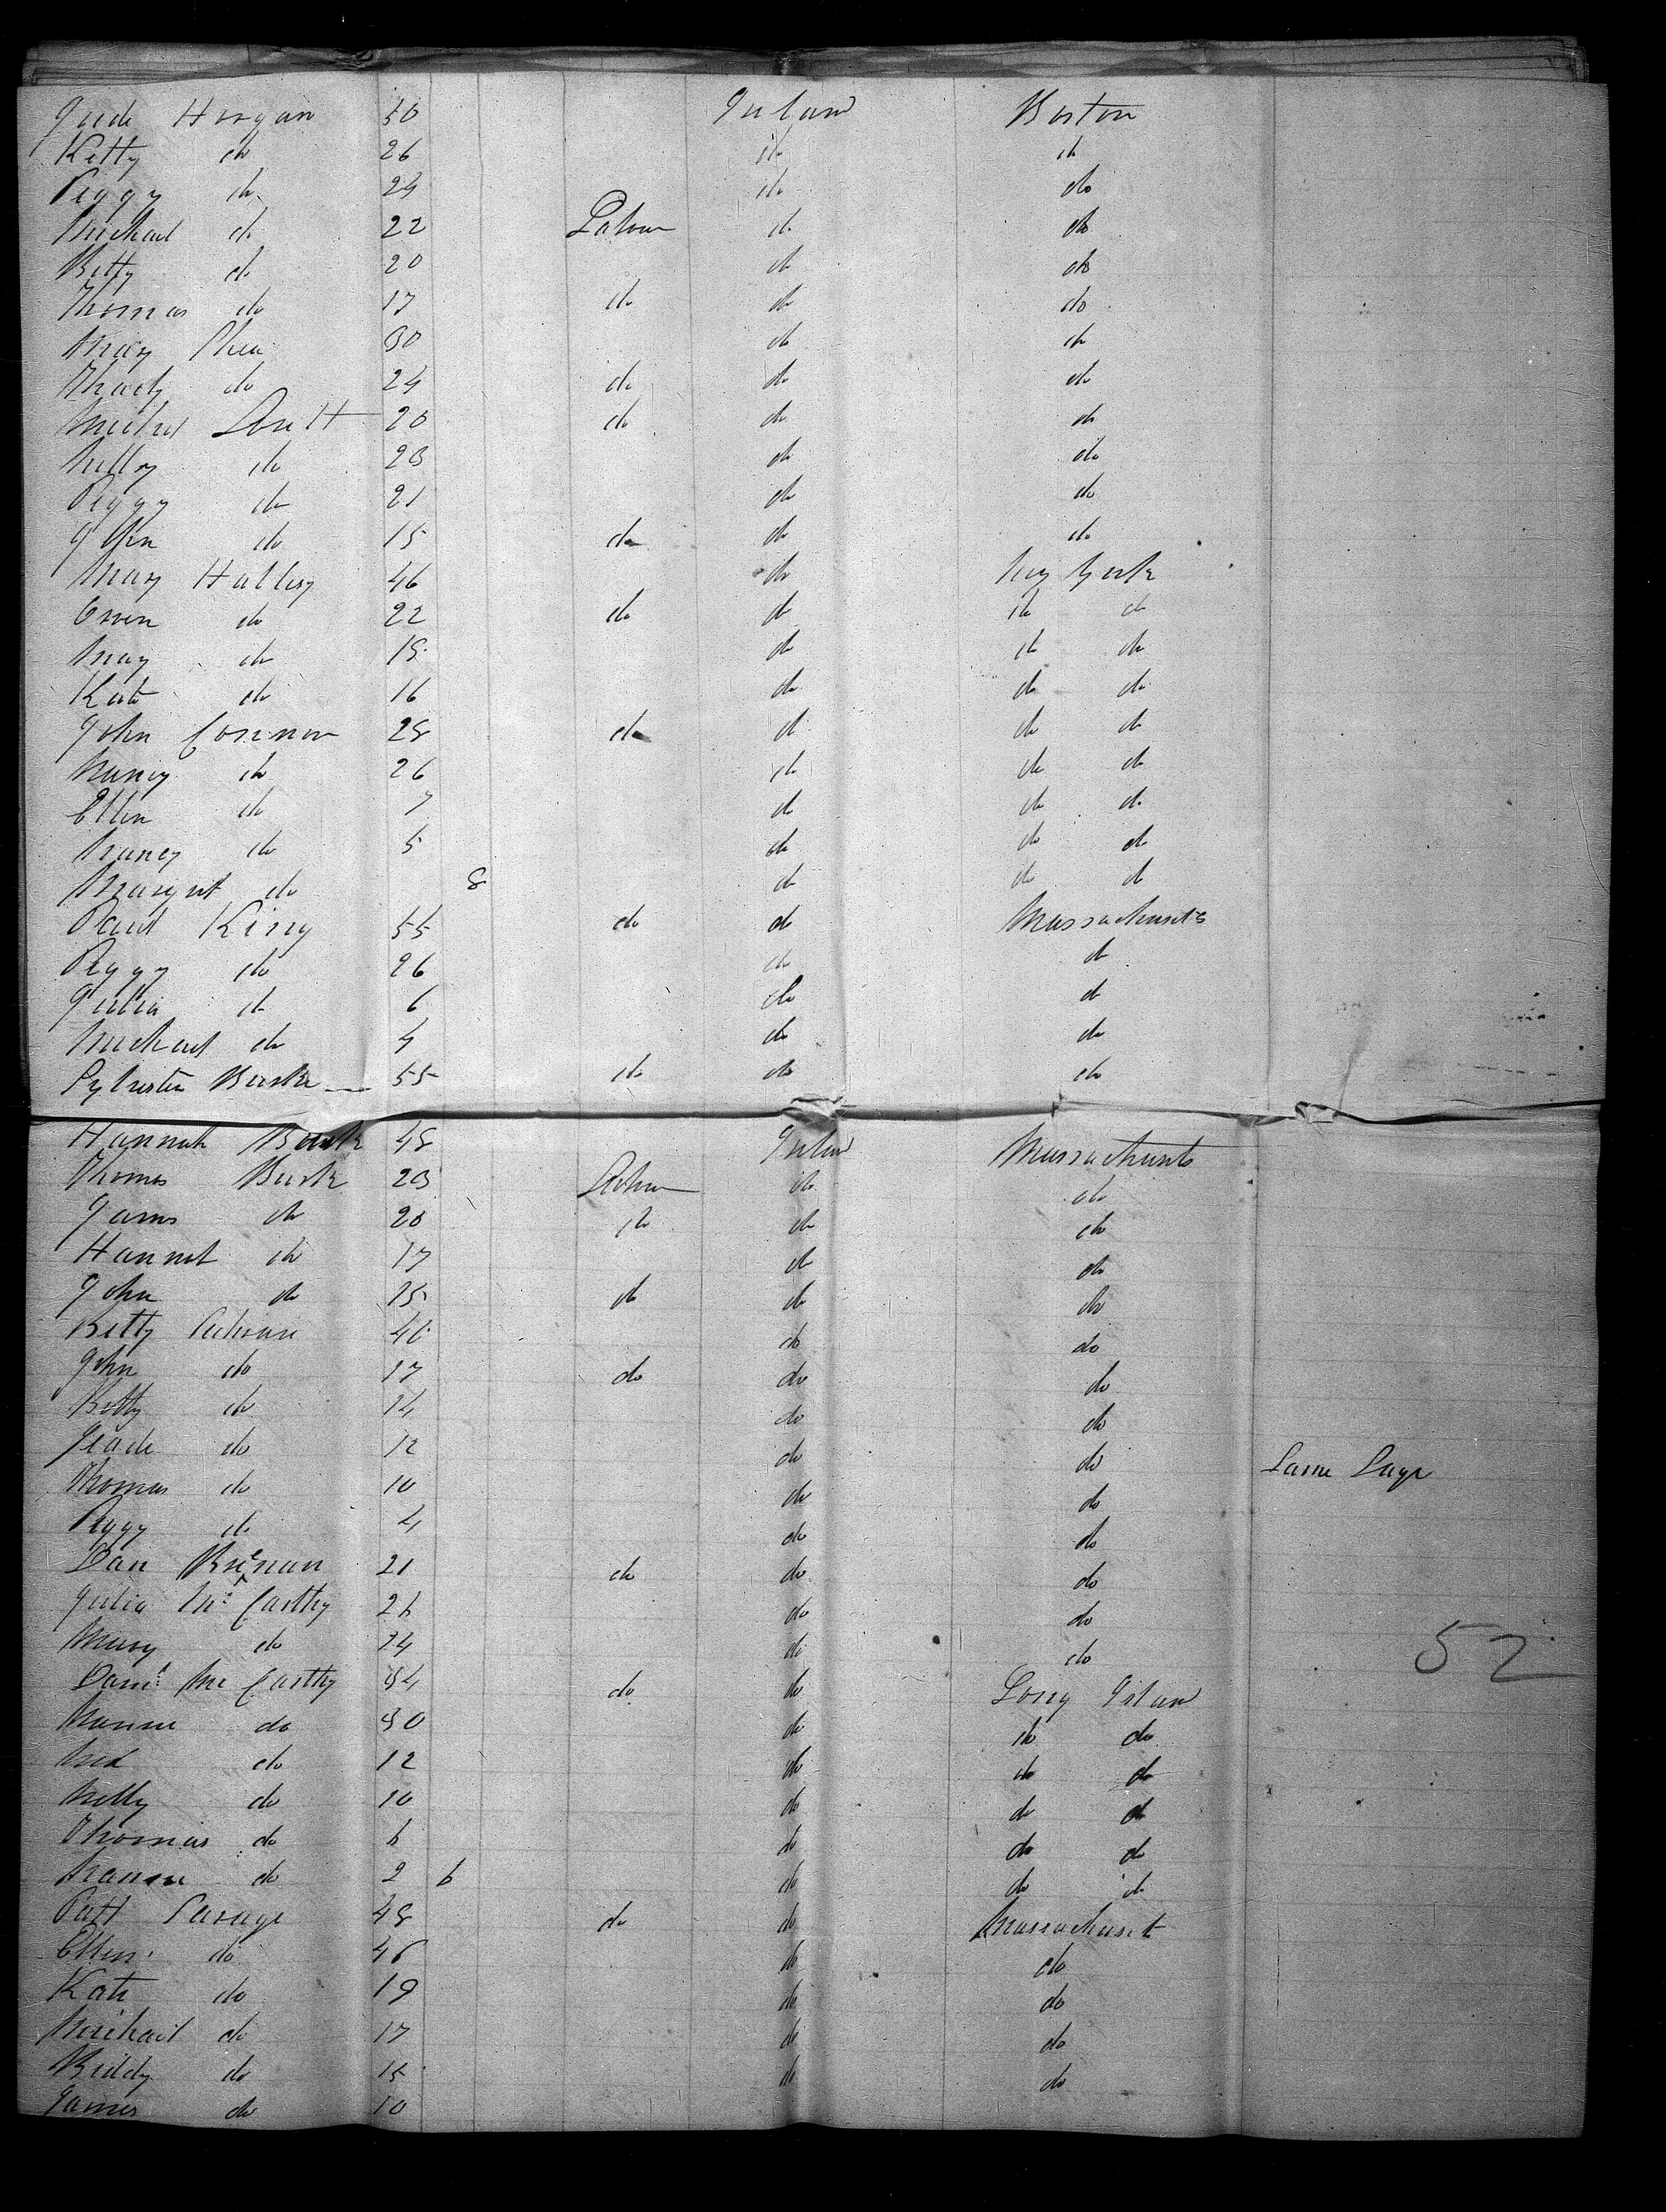 Jude Horgan 50 Ireland Boston
Kitty do 26 do do
Peggy do 24 do do
Michael do 22 Labour do do
Betty do 20 do do
Thomas do 17 do do do
Mary Shea 30 do do
Thady do 24 do do do
Michel 20 do do do
Nelly do 23 do do
Peggy do 21 do do
John do 15 do do do
Mary Hallisy 46 do New York
Owen do 22 do do do do
Mary do 18 do do do
Kate do 16 do do do
John Connor 28 do do do do
Nancy do 26 do do do
Ellen do 7 do do do
Nancy do 5 do do do
Margret do 8 do do do
Paul King 55 do do Massachusets
Peggy do 26 do do
Julia do 6 do do
Michael do 4 do do
Sylvester Burke 55 do do do
Hannah Burke 48 Ireland Massachusets
Thomas Burke 23 Labour do do
James do 20 do do do
Hannah do 17 do do
John do 15 do do do
Betty 46 do do
John do 17 do do do
Betty do 14 do do
Jude do 12 do do Same Page
Thomas do 10 do do
Peggy do 4 do do
Dan Brenan 21 do do do
Julia Mc Carthy 26 do do
Mary do 24 do do
Danl Mc Carthy 34 do do Long Island
Nannie do 30 do do do
Ned do 12 do do do
Nelly do 10 do do do
Thomas do 6 do do do
Nannie do 2 6 do do do
Patt Savage 48 do do Massachuset
Ellen do 46 do do
Kate do 19 do do
Michael do 17 do do
Biddy do 15 do do
James do 10
52